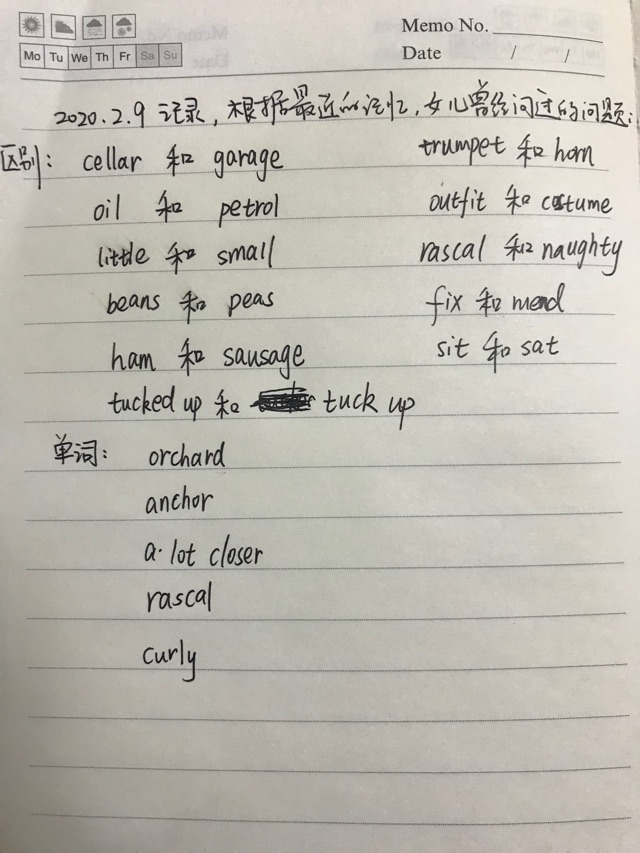 Memo No.
Mo Tu We Th Fr Sa Su
Date / /
2020.2.9 记录，根据最近的记忆，女儿曾经问过的问题：
区别： cellar 和 garage trumpet 和 horn
oil 和 petrol outfit 和 costume
little 和 small rascal 和 naughty
beans 和 peas fix 和 mend
ham 和 sausage sit 和 sat
tucked up 和 tuck up
单词： orchard
anchor
a lot closer
rascal
curly